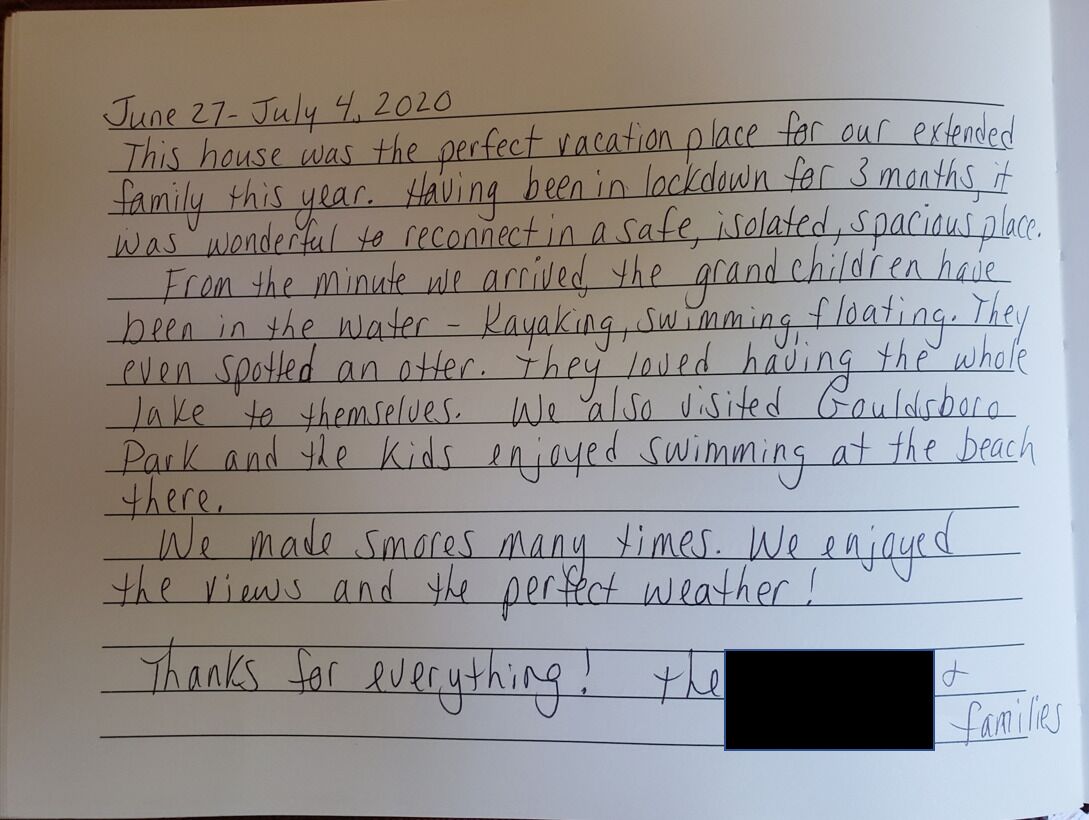 June 27- July 4, 2020
This house was the perfect vacation place for our extended
family this year. Having been in lockdown for 3 months, it
was wonderful to reconnect in a safe, isolated, spacious place.
From the minute we arrived, the grandchildren have
been in the water - Kayaking, swimming, floating. They
even spotted an otter. They loved having the whole
lake to themselves. We also visited Gouldsboro
Park and the kids enjoyed swimming at the beach
there.
We made smores many times. We enjoyed
the views and the perfect weather!
Thanks for everything! The &
families